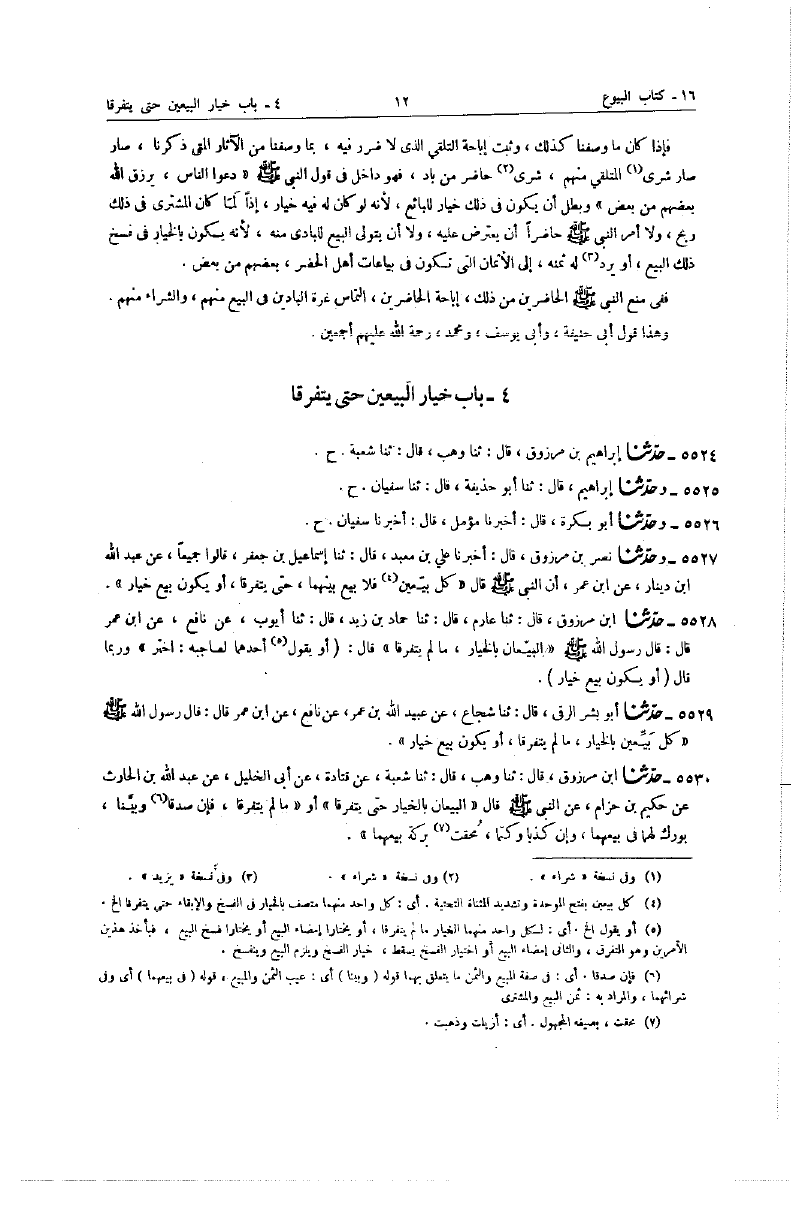 ١٦ - كتاب البيوع ١٢ ٤ - باب خيار البيعين حتى يتفرقا
فإذا كان ما وصفنا كذلك ، وثبت إباحة التلقي الذى لا ضرر فيه ، بما وصفنا من الآثار التى ذكرنا ، صار
صار شرى(١) المتلقي منهم ، شرى(٢) حاضر من باد ، فهو داخل فى قول النبي ﷺ « دعوا الناس ، يرزق الله
بعضهم من بعض » وبطل أن يكون فى ذلك خيار للبائع ، لأنه لو كان له فيه خيار ، إذاً لمَا كان المشترى فى ذلك
ربح ، ولا أمر النبي ﷺ حاضراً أن يعترض عليه ، ولا أن يتولى البيع للبادى منه ، لأنه يكون بالخيار فى فسخ
ذلك البيع ، أو يرد(٣) له ثمنه ، إلى الأثمان التى تكون فى بياعات أهل الحضر ، بعضهم من بعض .
ففى منع النبي ﷺ الحاضرين من ذلك ، إباحة الحاضرين ، التماس غرة البادين فى البيع منهم ، والشراء منهم .
وهذا قول أبى حنيفة ، وأبى يوسف ، ومحمد ، رحمة الله عليهم أجمعين .
٤ - باب خيار البيعين حتى يتفرقا
٥٥٢٤ - حدّثنا إبراهيم بن مرزوق ، قال : ثنا وهب ، قال : ثنا شعبة . ح .
٥٥٢٥ - وحدّثنا إبراهيم ، قال : ثنا أبو حذيفة ، قال : ثنا سفيان . ح .
٥٥٢٦ - وحدّثنا أبو بكرة ، قال : أخبرنا مؤمل ، قال : أخبرنا سفيان . ح .
٥٥٢٧ - وحدّثنا نصر بن مرزوق ، قال : أخبرنا علي بن معبد ، قال : ثنا إسماعيل بن جعفر ، قالوا جميعاً ، عن عبد الله
ابن دينار ، عن ابن عمر ، أن النبي ﷺ قال « كل بيّعين(٤) فلا بيع بينهما ، حتى يتفرقا ، أو يكون بيع خيار » .
٥٥٢٨ - حدّثنا ابن مرزوق ، قال : ثنا عارم ، قال : ثنا حماد بن زيد ، قال : ثنا أيوب ، عن نافع ، عن ابن عمر
قال : قال رسول الله ﷺ « البيّعان بالخيار ، ما لم يتفرقا » قال : ( أو يقول(٥) أحدهما لصاحبه : اختر » وربما
قال ( أو يكون بيع خيار ) .
٥٥٢٩ - حدّثنا أبو بشر الرقى ، قال : ثنا شجاع ، عن عبيد الله بن عمر ، عن نافع ، عن ابن عمر قال : قال رسول الله ﷺ
« كل بَيِّعين بالخيار ، ما لم يتفرقا ، أو يكون بيع خيار » .
٥٥٣٠ - حدّثنا ابن مرزوق ، قال : ثنا وهب ، قال : ثنا شعبة ، عن قتادة ، عن أبى الخليل ، عن عبد الله بن الحارث
عن حكيم بن حزام ، عن النبي ﷺ قال « البيعان بالخيار حتى يتفرقا » أو « ما لم يتفرقا ، فإن صدقا(٦) وبيّنا ،
بورك لهما فى بيعهما ، وإن كذبا وكتما ، مُحقت(٧) بركة بيعهما » .
(١) وفى نسخة « شراء » . (٢) وفى نسخة « شراء » . (٣) وفى نسخة « يزيد » .
(٤) كل بيعين بفتح الموحدة وتشديد المثناة التحتية . أى : كل واحد منهما متصف بالخيار فى الفسخ والإبقاء حتى يتفرقا الخ .
(٥) أو يقول الخ . أى : لكل واحد منهما الخيار ما لم يتفرقا ، أو يختارا إمضاء البيع أو يختارا فسخ البيع ، فبأخذ هذين
الأمرين وهو التفرق ، والثانى إمضاء البيع أو اختيار الفسخ يسقط ، خيار الفسخ ويلزم البيع وينفسخ .
(٦) فإن صدقا . أى : فى صفة المبيع والثمن ما يتعلق بهما قوله ( وبينا ) أى : عيب الثمن والمبيع ، قوله ( فى بيعهما ) أى وفى
شرائهما ، والمراد به : ثمن البيع والمشترى
(٧) محقت ، بصيغه المجهول . أى : أزيلت وذهبت .